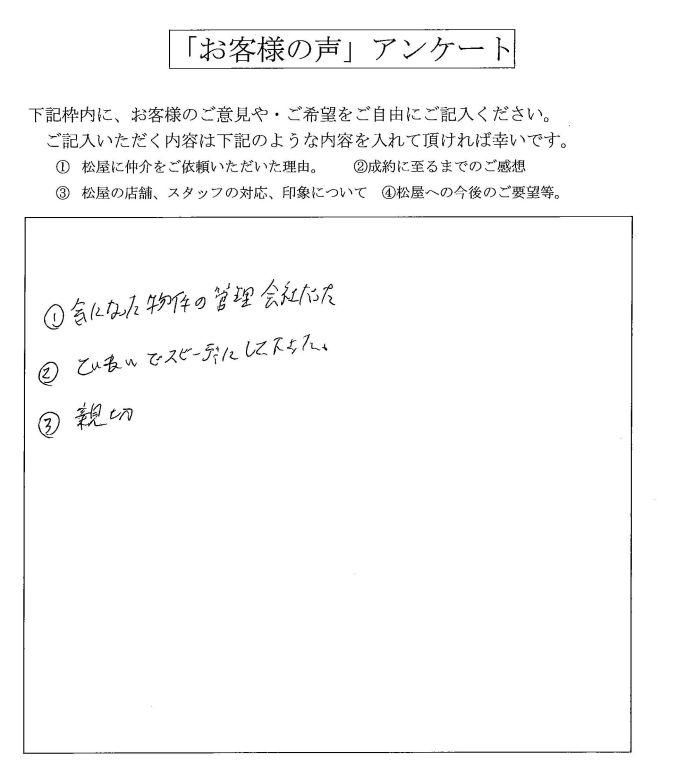 「お客様の声」アンケート
下記枠内に、お客様のご意見や・ご希望をご自由にご記入ください。
ご記入いただく内容は下記のような内容を入れて頂ければ幸いです。
① 松屋に仲介をご依頼いただいた理由。 ②成約に至るまでのご感想
③ 松屋の店舗、スタッフの対応、印象について ④松屋への今後のご要望等。
① 気になった物件の管理会社だった
② てい寧でスピーディにして下さった。
③ 親切